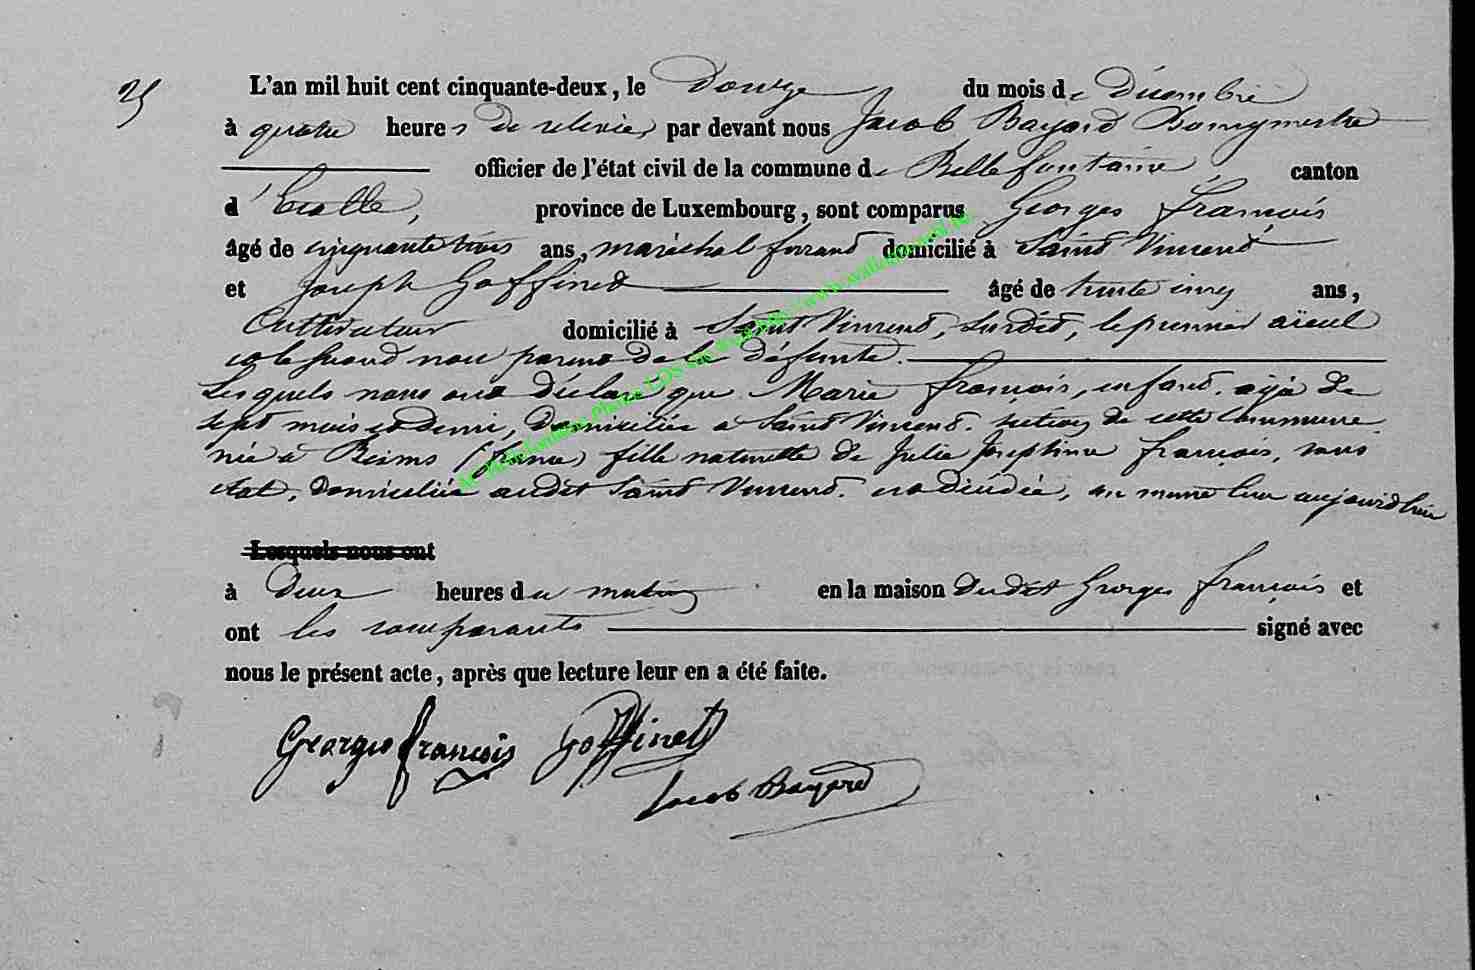 25
L'an mil huit cent cinquante-deux, le Douze du mois de Décembre
à quatre heures de relevée, par devant nous Jacob Bayard Bourgmestre
officier de l'état civil de la commune de Bellefontaine, canton
d'Etalle, province de Luxembourg, sont comparus Georges François
âgé de cinquante trois ans, maréchal ferrand domicilié à Saint Vincent
et Joseph Goffinet âgé de trente cinq ans,
Cultivateur domicilié à Saint Vincent, susdit, le premier aïeul
et le second non parent de la défunte.
Lesquels nous ont déclaré que Marie François, enfant, âgé de
sept mois et demi, domiciliée à Saint Vincent, section de cette commune
née à Reims (France) fille naturelle de Julie Josephine François, sans
état, domiciliée audit Saint Vincent, est décédée, au même lieu aujourd'hui
Lesquels nous ont
à deux heures du matin en la maison dudit Georges François et
ont les comparants signé avec
nous le présent acte, après que lecture leur en a été faite.
Georges françois Goffinet
Jacob Bayard